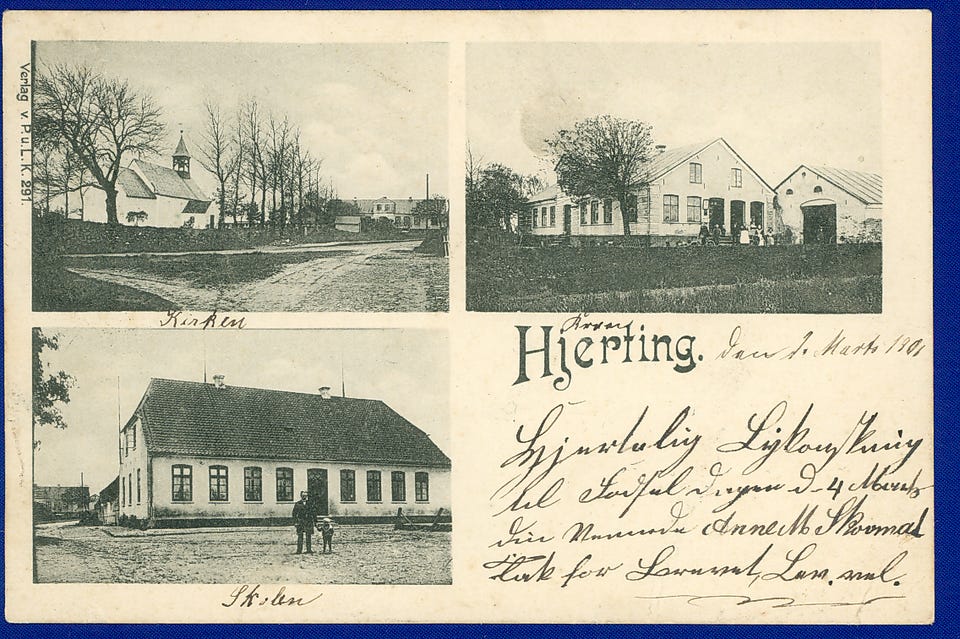 Verlag v. P. u. L. K. 291.
Kirken
Kroen
Hjerting.
den 2. Marts 1901
Skolen
Hjertelig Lykønskning
til Fødsel Dagen d- 4 Marts
din Veninde Anne M Skovmal
Tak for Brevet, Lev. vel.